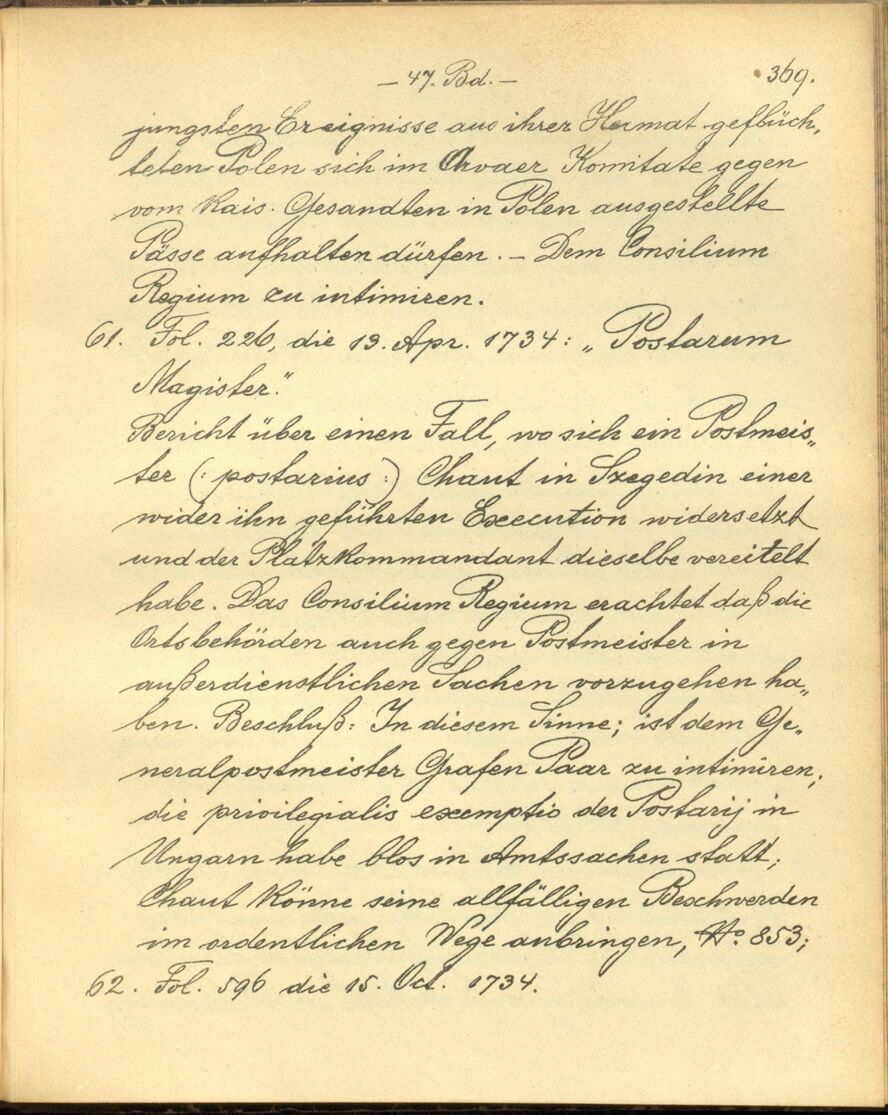 – 47. Bd. –
369.
jüngsten Ereignisse aus ihrer Heimat geflüch„
teten Polen sich im Arvaer Komitate gegen
vom Kais. Gesandten in Polen ausgestellte
Pässe aufhalten dürfen. – Dem Consilium
Regium zu intimiren.
61. Fol. 226, die 13. Apr. 1734: „Postarum
Magister."
Bericht über einen Fall, wo sich ein Postmeis„
ter (: postarius :) Chaut in Szegedin einer
wider ihn geführten Execution widersetzt
und der Platzkommandant dieselbe vereitelt
habe. Das Consilium Regium erachtet daß die
Ortsbehörden auch gegen Postmeister in
außerdienstlichen Sachen vorzugehen ha„
ben. Beschluß: In diesem Sinne; ist dem Ge„
neralpostmeister Grafen Paar zu intimiren;
die privilegialis exemptio der Postarij in
Ungarn habe blos in Amtssachen statt;
Chaut könne seine allfälligen Beschwerden
im ordentlichen Wege anbringen, No. 853;
62. Fol. 596 die 15. Oct. 1734.